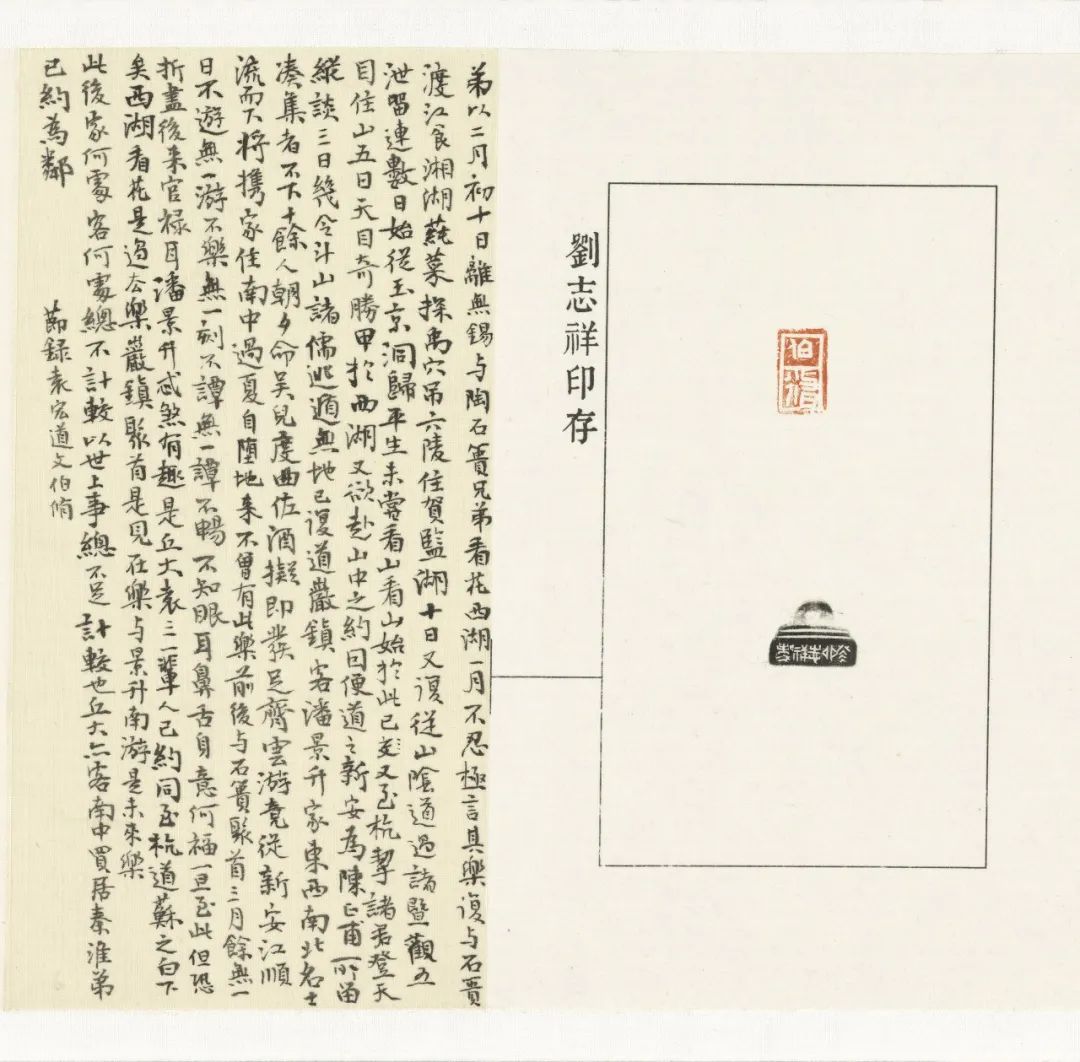 劉志祥印存
伯脩
弟以二月初十日離無錫与陶石簣兄弟看花西湖一月不忍極言其樂復与石簣
渡江食湘湖蒓菜探禹穴吊六陵住賀監湖十日又復從山陰道過諸暨觀五
泄留連數日始從玉京洞歸平生未嘗看山看山始於此已又至杭挈諸君登天
目住山五日天目奇勝甲於西湖又欲赴山中之約因便道之新安為陳正甫所留
縱談三日幾令斗山諸儒逃遁無地已復道巖鎮客潘景升家東西南北名士
湊集者不下十餘人朝夕命吳兒度曲佐酒擬即發足齊雲游竟從新安江順
流而下將攜家住南中過夏自墮地來不曾有此樂前後与石簣聚首三月餘無一
日不遊無一游不樂無一刻不譚無一譚不暢不知眼耳鼻舌身意何福一旦至此但恐
折盡後来官祿耳潘景升忒煞有趣是丘大袁三一輩人已約同至杭道蘇之白下
矣西湖看花是過去樂巖鎮聚首是見在樂与景升南游是未來樂
此後家何處客何處總不計較以世上事總不足計較也丘大亦客南中買居秦淮弟
已約為鄰
節録袁宏道文伯脩